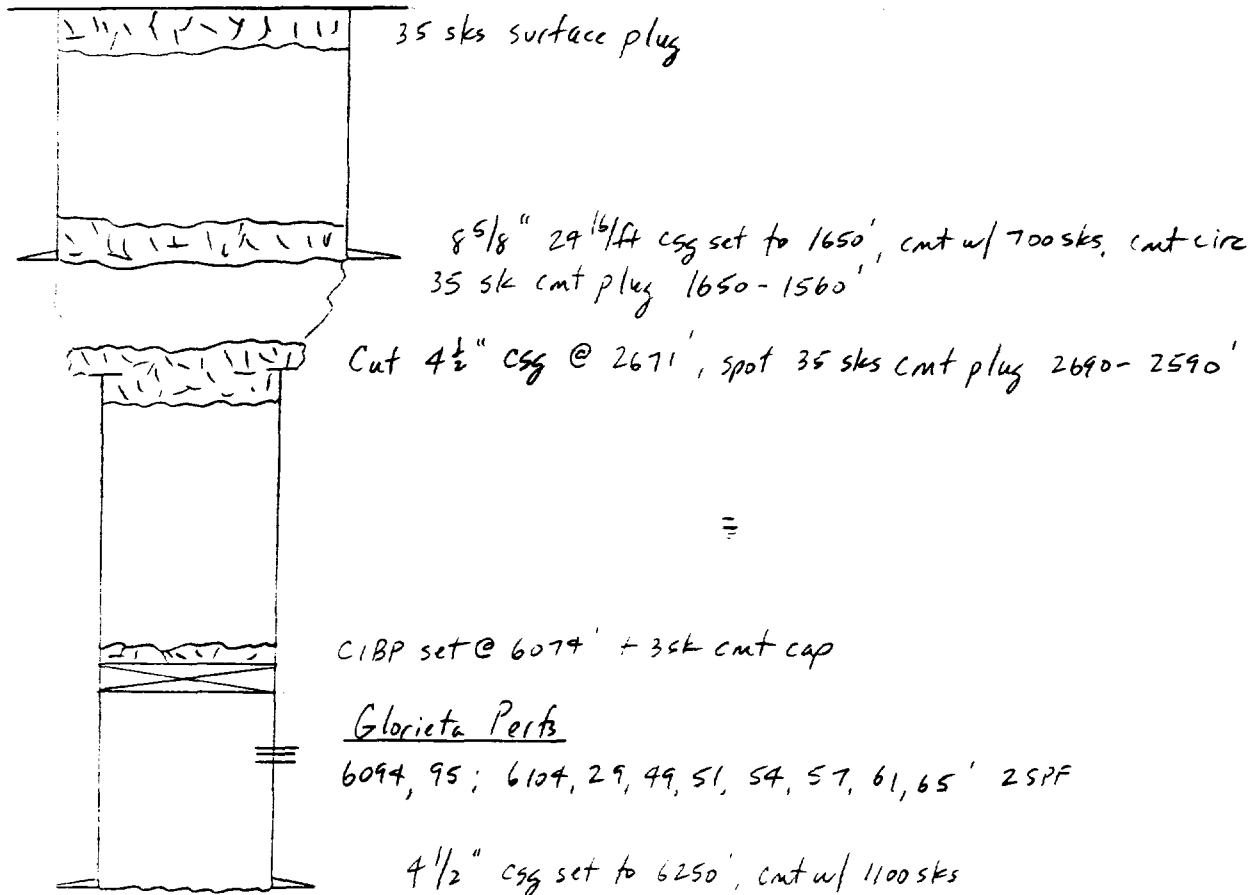 35 sks surface plug
8 5/8" 24 lb/ft csg set to 1650', cmt w/ 700 sks, cmt circ
35 sk cmt plug 1650-1560'
Cut 4 1/2" csg @ 2671', spot 35 sks cmt plug 2690-2590'
CIBP set @ 6074' + 3sk cmt cap
Glorieta Perfs
6094, 95; 6104, 29, 49, 51, 54, 57, 61, 65' 2SPF
4 1/2" csg set to 6250', cmt w/ 1100 sks